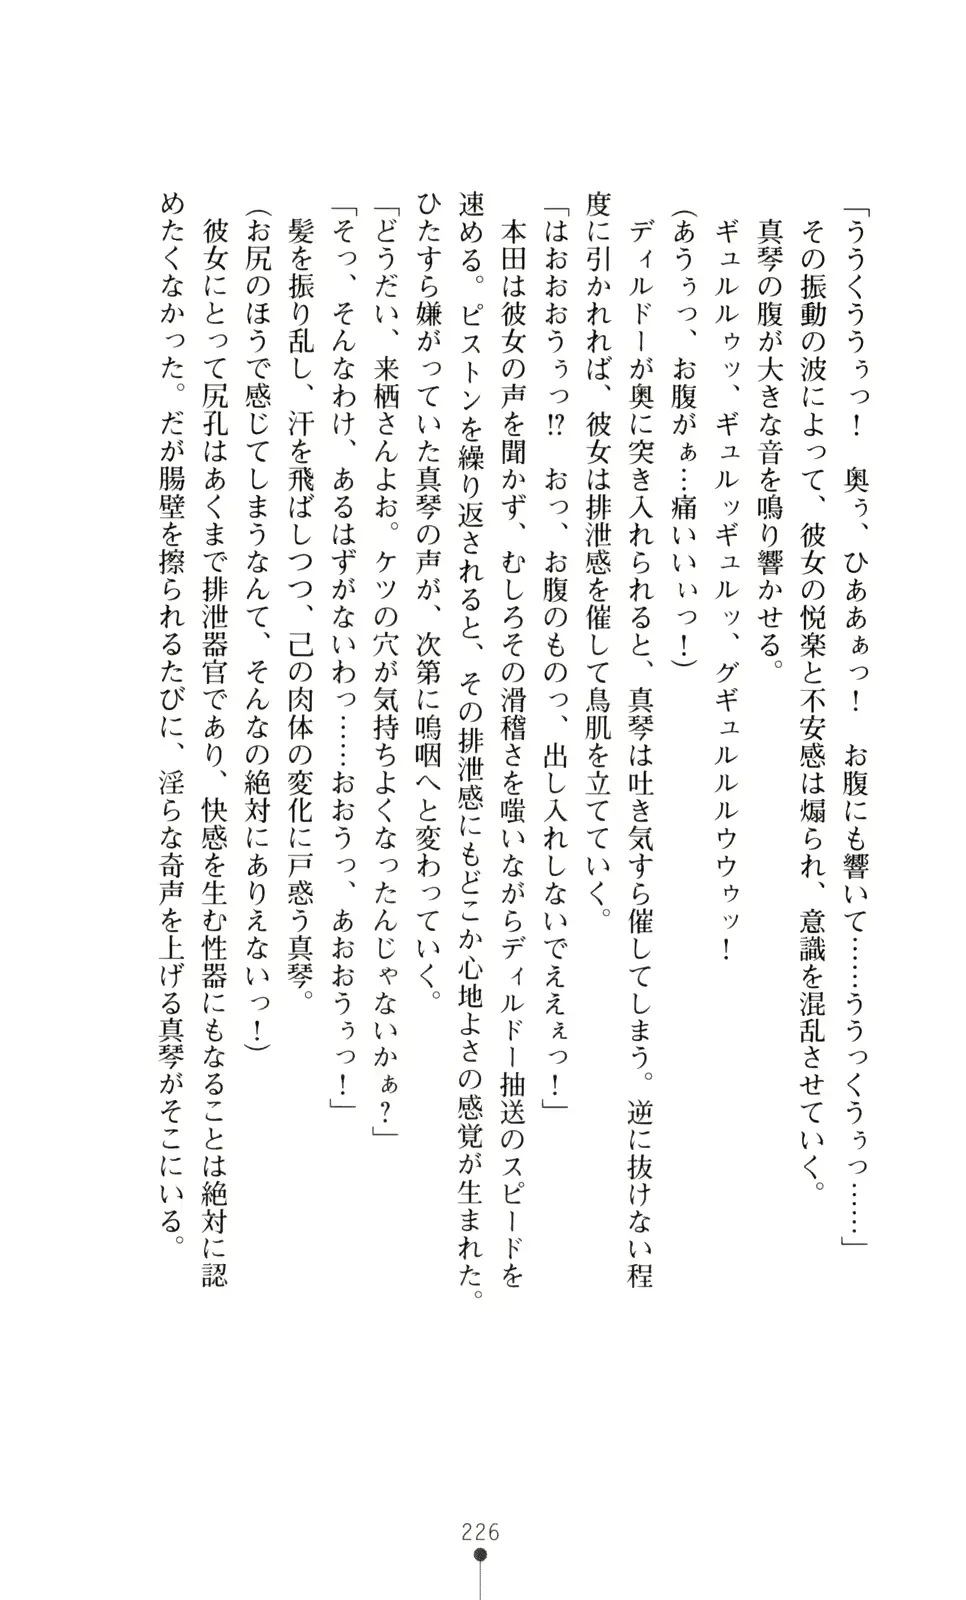 「ううくううぅっ！　奥ぅ、ひああぁっ！　お腹にも響いて……ううっくうぅっ……」
その振動の波によって、彼女の悦楽と不安感は煽られ、意識を混乱させていく。
真琴の腹が大きな音を鳴り響かせる。
ギュルルルゥッ、ギュルッギュルッ、グギュルルルウウゥッ！
（あうぅっ、お腹がぁ…痛いいぃっ！）
ディルドーが奥に突き入れられると、真琴は吐き気すら催してしまう。逆に抜けない程
度に引かれれば、彼女は排泄感を催して鳥肌を立てていく。
「はおおおうぅっ!?　おっ、お腹のものっ、出し入れしないでええぇっ！」
本田は彼女の声を聞かず、むしろその滑稽さを嗤いながらディルドー抽送のスピードを
速める。ピストンを繰り返されると、その排泄感にもどこか心地よさの感覚が生まれた。
ひたすら嫌がっていた真琴の声が、次第に嗚咽へと変わっていく。
「どうだい、来栖さんよお。ケツの穴が気持ちよくなったんじゃないかぁ？」
「そっ、そんなわけ、あるはずがないわっ……おおうっ、あおおうぅっ！」
髪を振り乱し、汗を飛ばしつつ、己の肉体の変化に戸惑う真琴。
（お尻のほうで感じてしまうなんて、そんなの絶対にありえないっ！）
彼女にとって尻孔はあくまで排泄器官であり、快感を生む性器にもなることは絶対に認
めたくなかった。だが腸壁を擦られるたびに、淫らな奇声を上げる真琴がそこにいる。
226